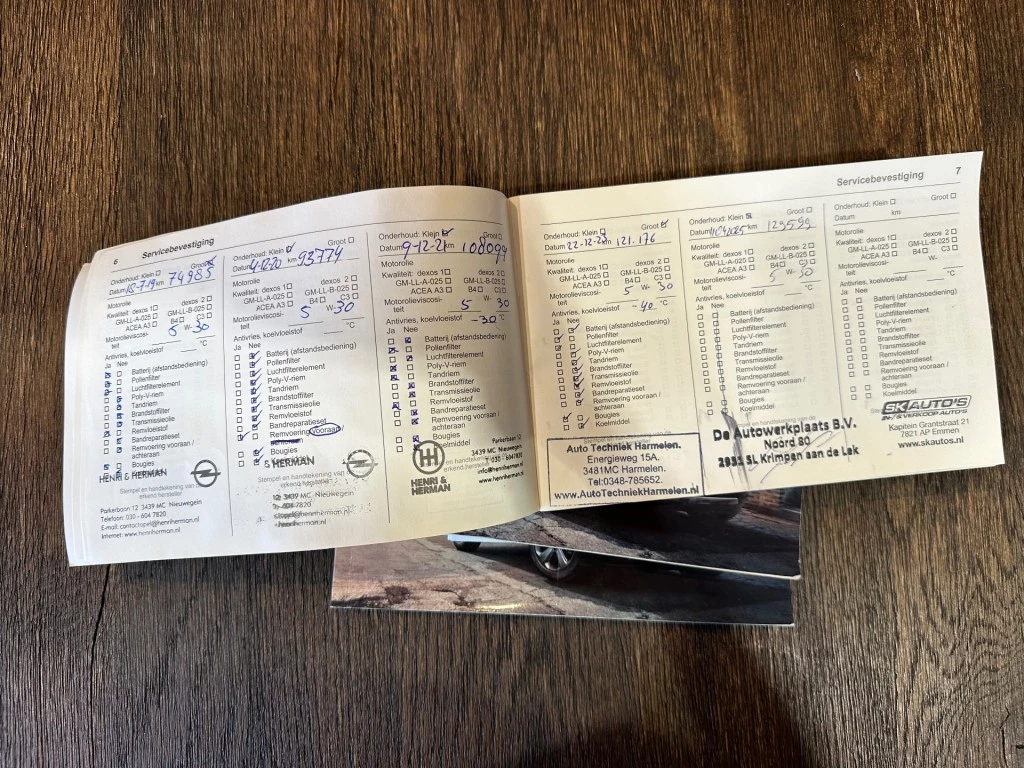 6 Servicebevestiging
Onderhoud: Klein Groot
Datum 18-7-19 km 74985
Motorolie
Kwaliteit: dexos 1 dexos 2
GM-LL-A-025 GM-LL-B-025
ACEA A3 B4 C3
Motorolieviscosi-
teit 5 W- 30
Antivries, koelvloeistof °C
Ja Nee
Batterij (afstandsbediening)
Pollenfilter
Luchtfilterelement
Poly-V-riem
Tandriem
Brandstoffilter
Transmissieolie
Remvloeistof
Bandreparatieset
Remvoering vooraan /
achteraan
Bougies
Koelmiddel
HENRI & HERMAN
Stempel en handtekening van de
erkend hersteller
Parkerbaan 12 3439 MC Nieuwegein
Telefoon: 030 - 604 7820
E-mail: contactopel@henriherman.nl
Internet: www.henriherman.nl
Onderhoud: Klein Groot
Datum 4-12-20 km 93774
Motorolie
Kwaliteit: dexos 1 dexos 2
GM-LL-A-025 GM-LL-B-025
ACEA A3 B4 C3
Motorolieviscosi-
teit 5 W- 30
Antivries, koelvloeistof °C
Ja Nee
Batterij (afstandsbediening)
Pollenfilter
Luchtfilterelement
Poly-V-riem
Tandriem
Brandstoffilter
Transmissieolie
Remvloeistof
Bandreparatieset
Remvoering vooraan
Bougies
HERMAN
Stempel en handtekening van de
erkend hersteller
12 3439 MC Nieuwegein
604 7820
henriherman.nl
Onderhoud: Klein Groot
Datum 9-12-21 km 108099
Motorolie
Kwaliteit: dexos 1 dexos 2
GM-LL-A-025 GM-LL-B-025
ACEA A3 B4 C3
Motorolieviscosi-
teit 5 W- 30
Antivries, koelvloeistof -30 °C
Ja Nee
Batterij (afstandsbediening)
Pollenfilter
Luchtfilterelement
Poly-V-riem
Tandriem
Brandstoffilter
Transmissieolie
Remvloeistof
Bandreparatieset
Remvoering vooraan /
achteraan
Bougies
Koelmiddel
HENRI &
HERMAN
Parkerbaan 12
3439 MC Nieuwegein
T 030 - 6047820
www.henriherman.nl
Servicebevestiging 7
Onderhoud: Klein Groot
Datum 22-12-23 km 121.176
Motorolie
Kwaliteit: dexos 1 dexos 2
GM-LL-A-025 GM-LL-B-025
ACEA A3 B4 C3
Motorolieviscosi-
teit 5 W- 30
Antivries, koelvloeistof -40 °C
Ja Nee
Batterij (afstandsbediening)
Pollenfilter
Luchtfilterelement
Poly-V-riem
Tandriem
Brandstoffilter
Transmissieolie
Remvloeistof
Bandreparatieset
Remvoering vooraan /
achteraan
Bougies
Koelmiddel
Stempel en handtekening van de
Auto Techniek Harmelen.
Energieweg 15A.
3481MC Harmelen.
Tel:0348-785652.
www.AutoTechniekHarmelen.nl
Onderhoud: Klein Groot
Datum km
Motorolie
Kwaliteit: dexos 1 dexos 2
GM-LL-A-025 GM-LL-B-025
ACEA A3 B4 C3
Motorolieviscosi-
teit 5 W- 30
Antivries, koelvloeistof °C
Ja Nee
Batterij (afstandsbediening)
Pollenfilter
Luchtfilterelement
Poly-V-riem
Tandriem
Brandstoffilter
Transmissieolie
Remvloeistof
Bandreparatieset
Remvoering vooraan /
achteraan
Bougies
Koelmiddel
De Autowerkplaats B.V.
Noord 80
2931 SL Krimpen aan de Lek
Onderhoud: Klein Groot
Datum km
Motorolie
Kwaliteit: dexos 1 dexos 2
GM-LL-A-025 GM-LL-B-025
ACEA A3 B4 C3
Motorolieviscosi-
teit W-
Antivries, koelvloeistof °C
Ja Nee
Batterij (afstandsbediening)
Pollenfilter
Luchtfilterelement
Poly-V-riem
Tandriem
Brandstoffilter
Transmissieolie
Remvloeistof
Bandreparatieset
Remvoering vooraan /
achteraan
Bougies
Koelmiddel
SK AUTO'S
VERKOOP AUTO'S
Kapitein Grantstraat 21
7821 AP Emmen
www.skautos.nl